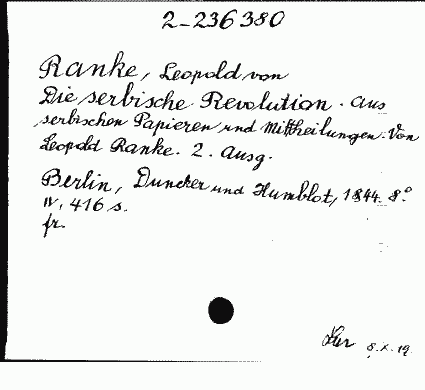 2-236380
Ranke, Leopold von
Die serbische Revolution. Aus
serbischen Papieren und Mittheilungen. Von
Leopold Ranke. 2. Ausg.
Berlin, Duncker und Humblot, 1844. 8.°
IV, 416 s.
fr.
8.X.19.